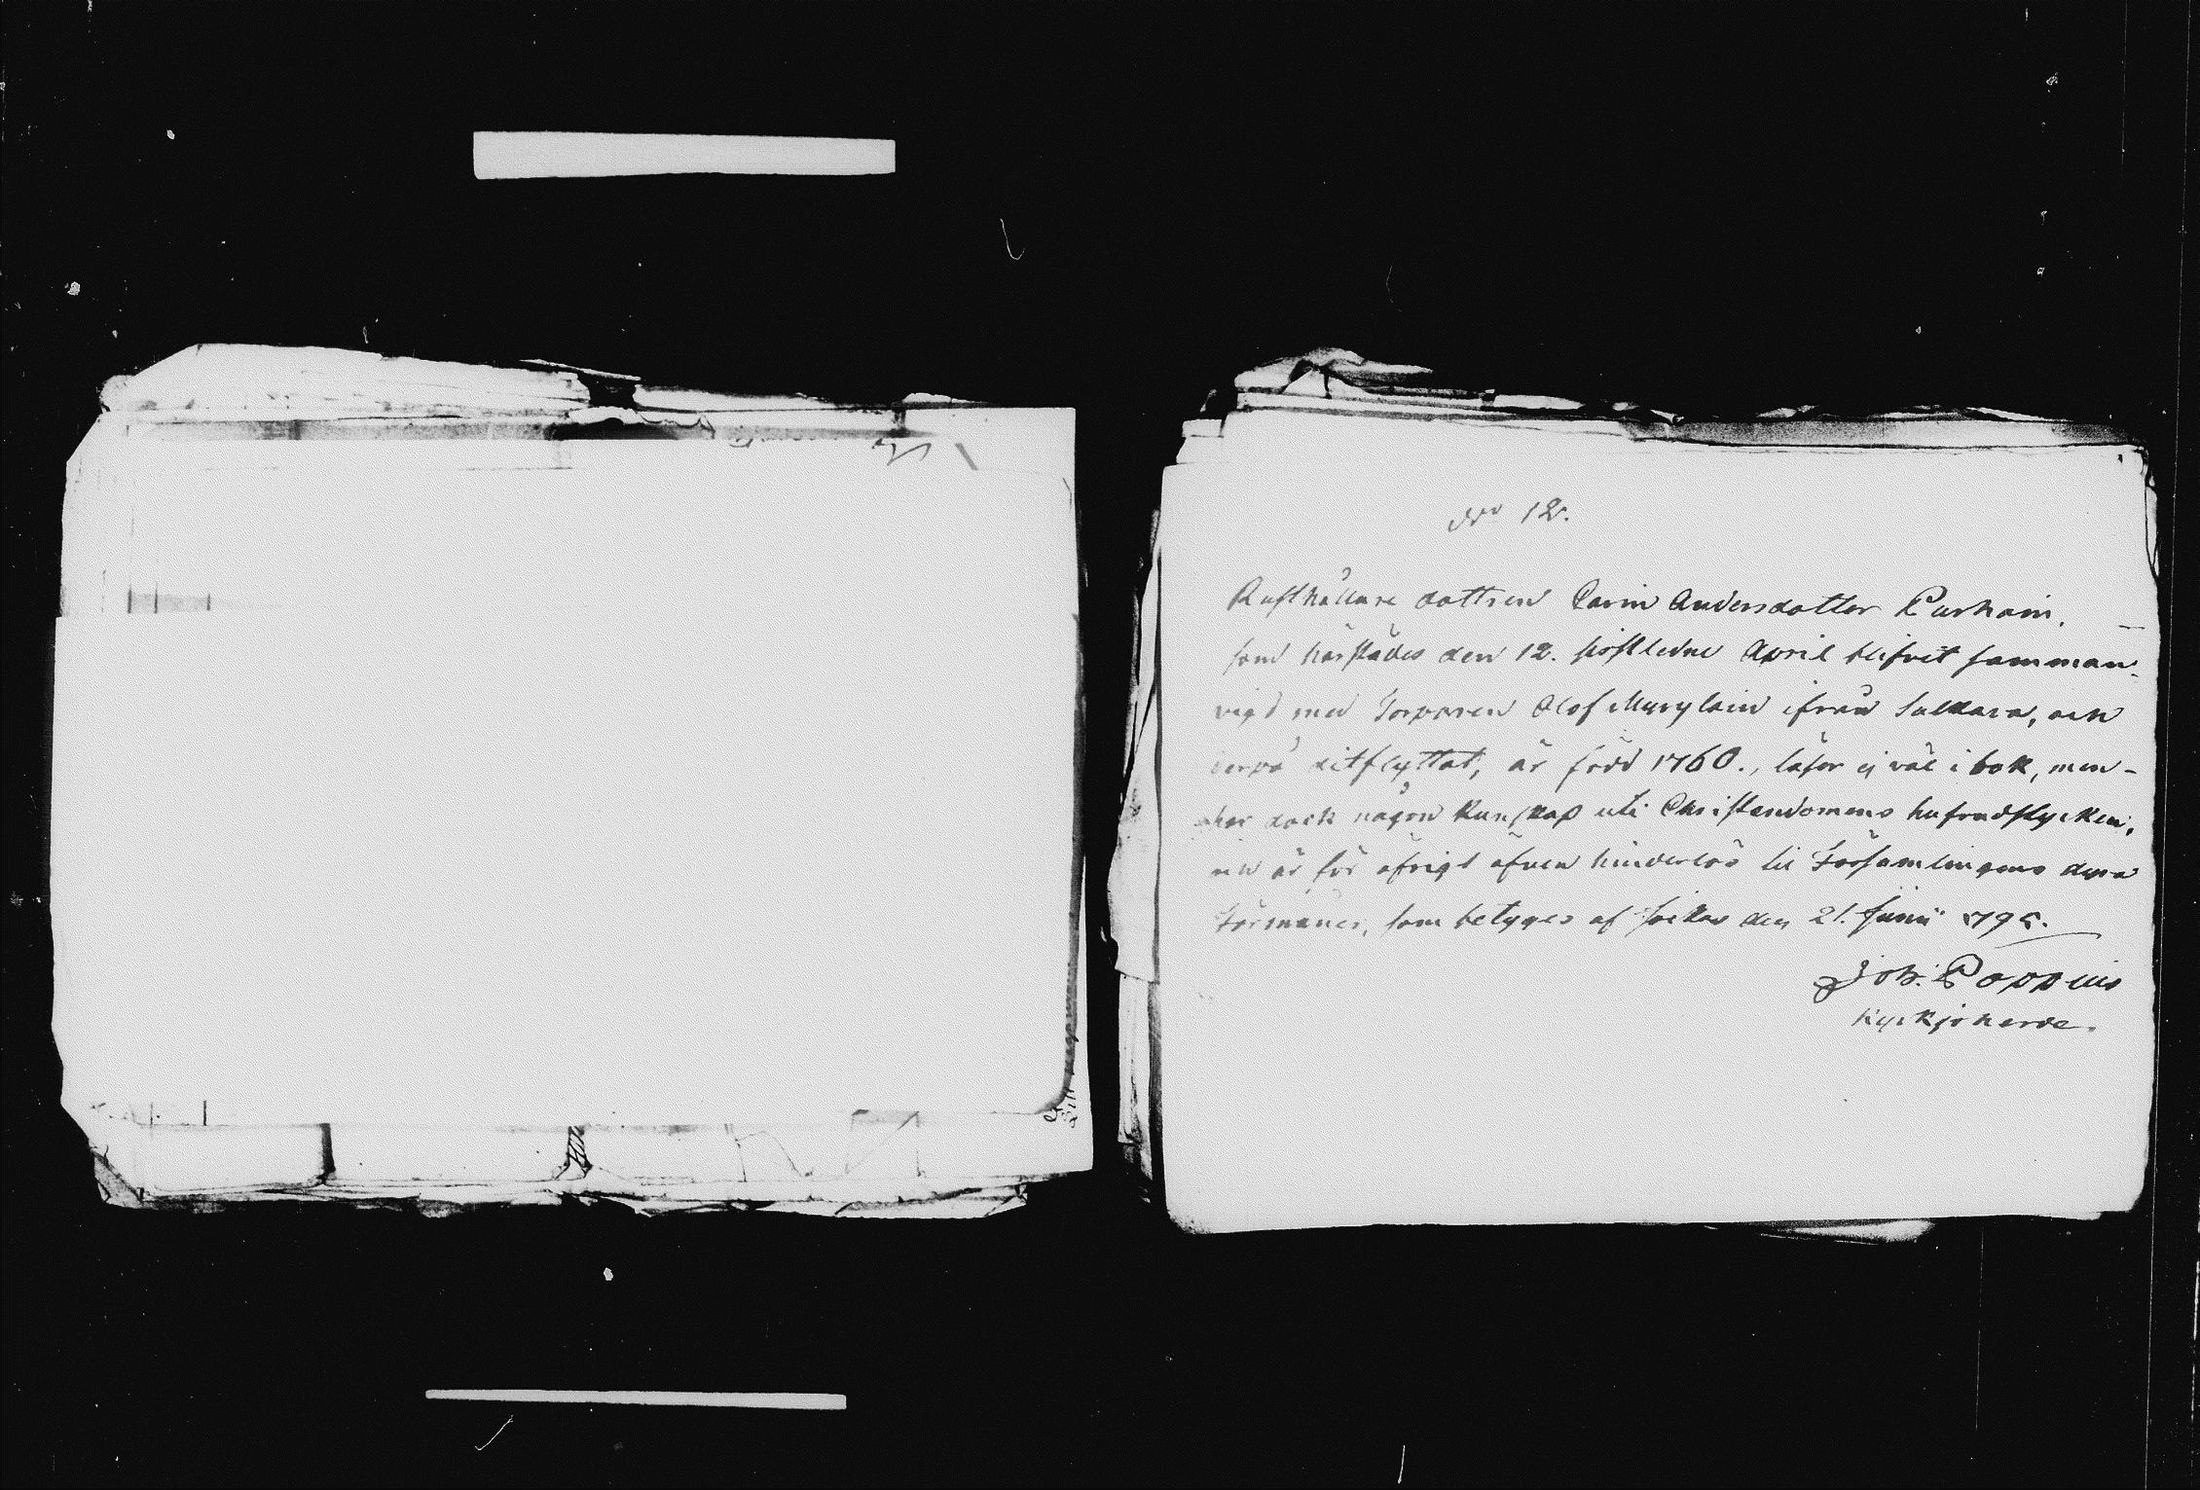 No 12.
Rusthållare dottren Carin Andersdotter Curhain,
som härstädes den 12. sistledne April blifvit samman-
vigd med Torparen Olof Myrylain ifrån Sulkava, och
derpå ditflyttat, är född 1760., läser ej väl i bok, men
har dock någon kunskap uti Christendomens hufvudstycken,
och är för öfrigt äfven hinderlös til Församlingens dyra
Förmåner, som betyges af Jockas den 21. Junii 1795.
Joh. Poppius
Kyrkjoherde.